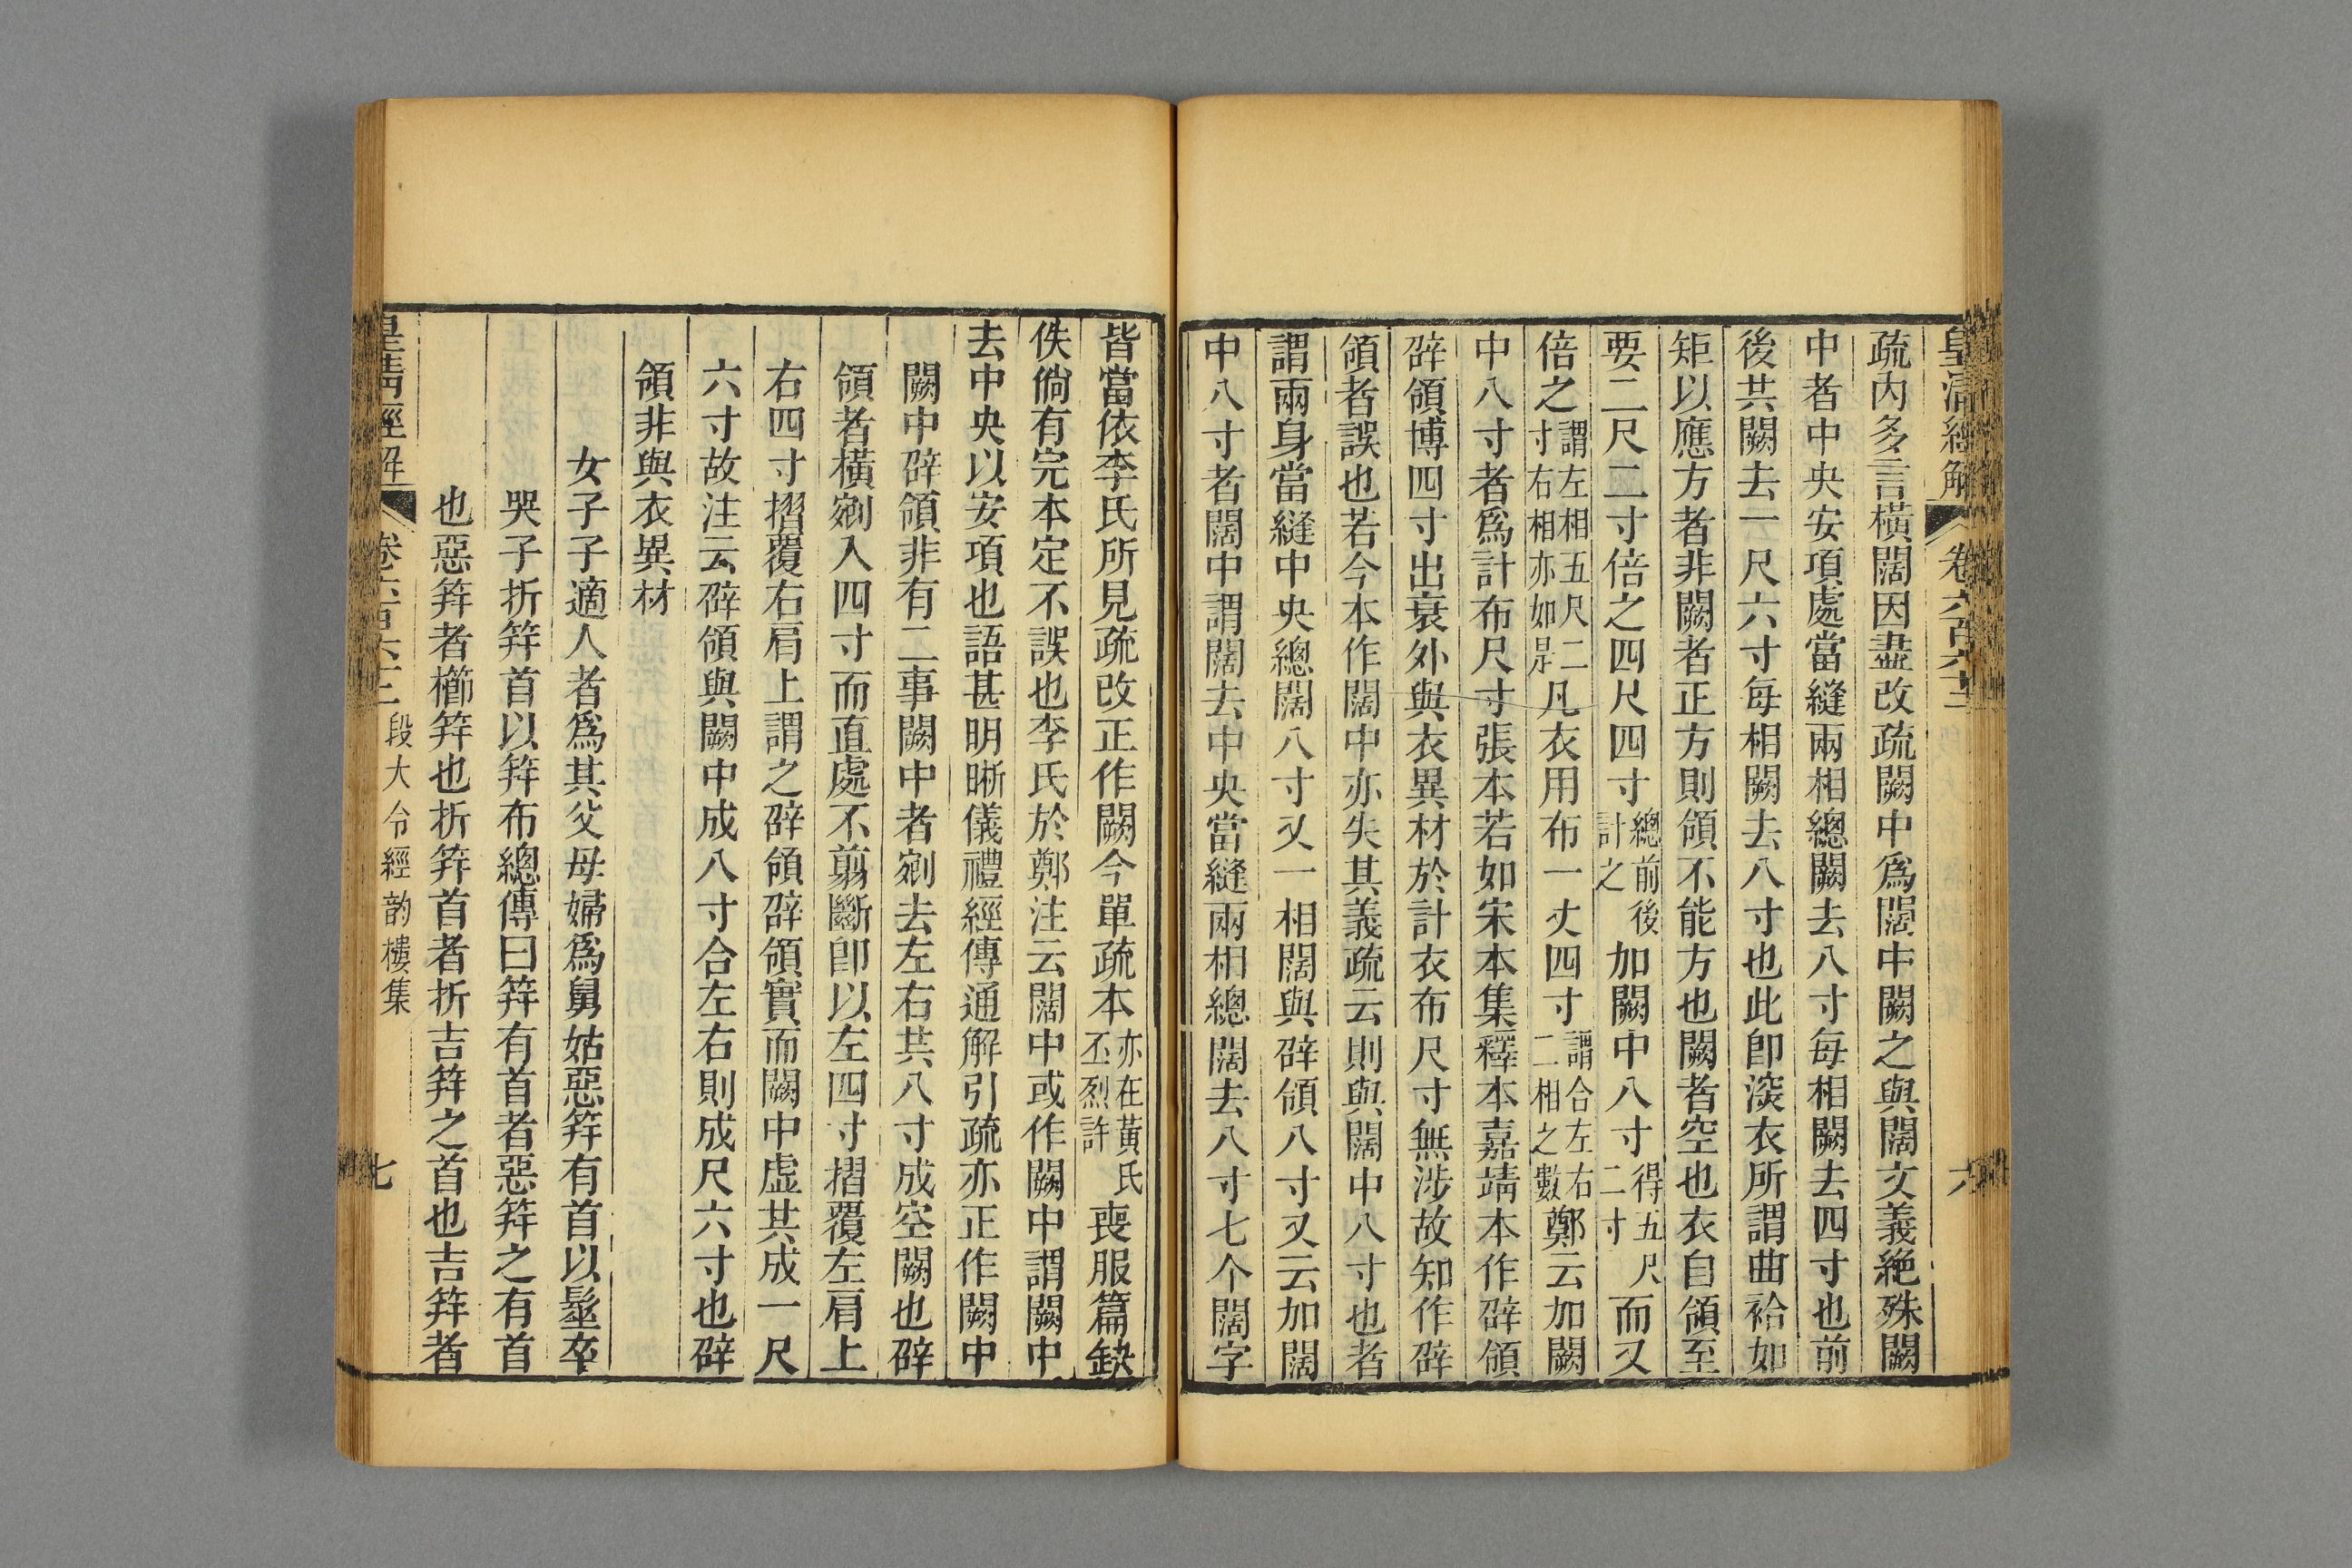 皇清經解 卷六百六十三 六
疏內多言橫闊因盡改疏闕中爲闊中闕之與闊文義絶殊闕
中者中央安項處當縫兩相總闕去八寸每相闕去四寸也前
後共闕去一尺六寸每相闕去八寸也此卽深衣所謂曲袷如
矩以應方者非闕者正方則領不能方也闕者空也衣自領至
要二尺二寸倍之四尺四寸總前後計之加闕中八寸得五尺二寸而又
倍之謂左相五尺二寸右相亦如是凡衣用布一丈四寸謂合左右二相之數鄭云加闕
中八寸者爲計布尺寸張本若如宋本集釋本嘉靖本作辟領
辟領博四寸出衰外與衣異材於計衣布尺寸無涉故知作辟
領者誤也若今本作闊中亦失其義疏云則與闊中八寸也者
謂兩身當縫中央總闊八寸又一相闊與辟領八寸又云加闊
中八寸者闊中謂闊去中央當縫兩相總闊去八寸七个闊字
皆當依李氏所見疏改正作闕今單疏本亦在黃氏丕烈許喪服篇缺
佚倘有完本定不誤也李氏於鄭注云闊中或作闕中謂闕中
去中央以安項也語甚明晰儀禮經傳通解引疏亦正作闕中
闕中辟領非有二事闕中者剜去左右共八寸成空闕也辟
領者橫剜入四寸而直處不翦斷卽以左四寸摺覆左肩上
右四寸摺覆右肩上謂之辟領辟領實而闕中虛其成一尺
六寸故注云辟領與闕中成八寸合左右則成尺六寸也辟
領非與衣異材
女子子適人者爲其父母婦爲舅姑惡笄有首以髽卒
哭子折笄首以笄布總傳曰笄有首者惡笄之有首
也惡笄者櫛笄也折笄首者折吉笄之首也吉笄者
皇清經解 卷六百六十三 段大令經韵樓集 七